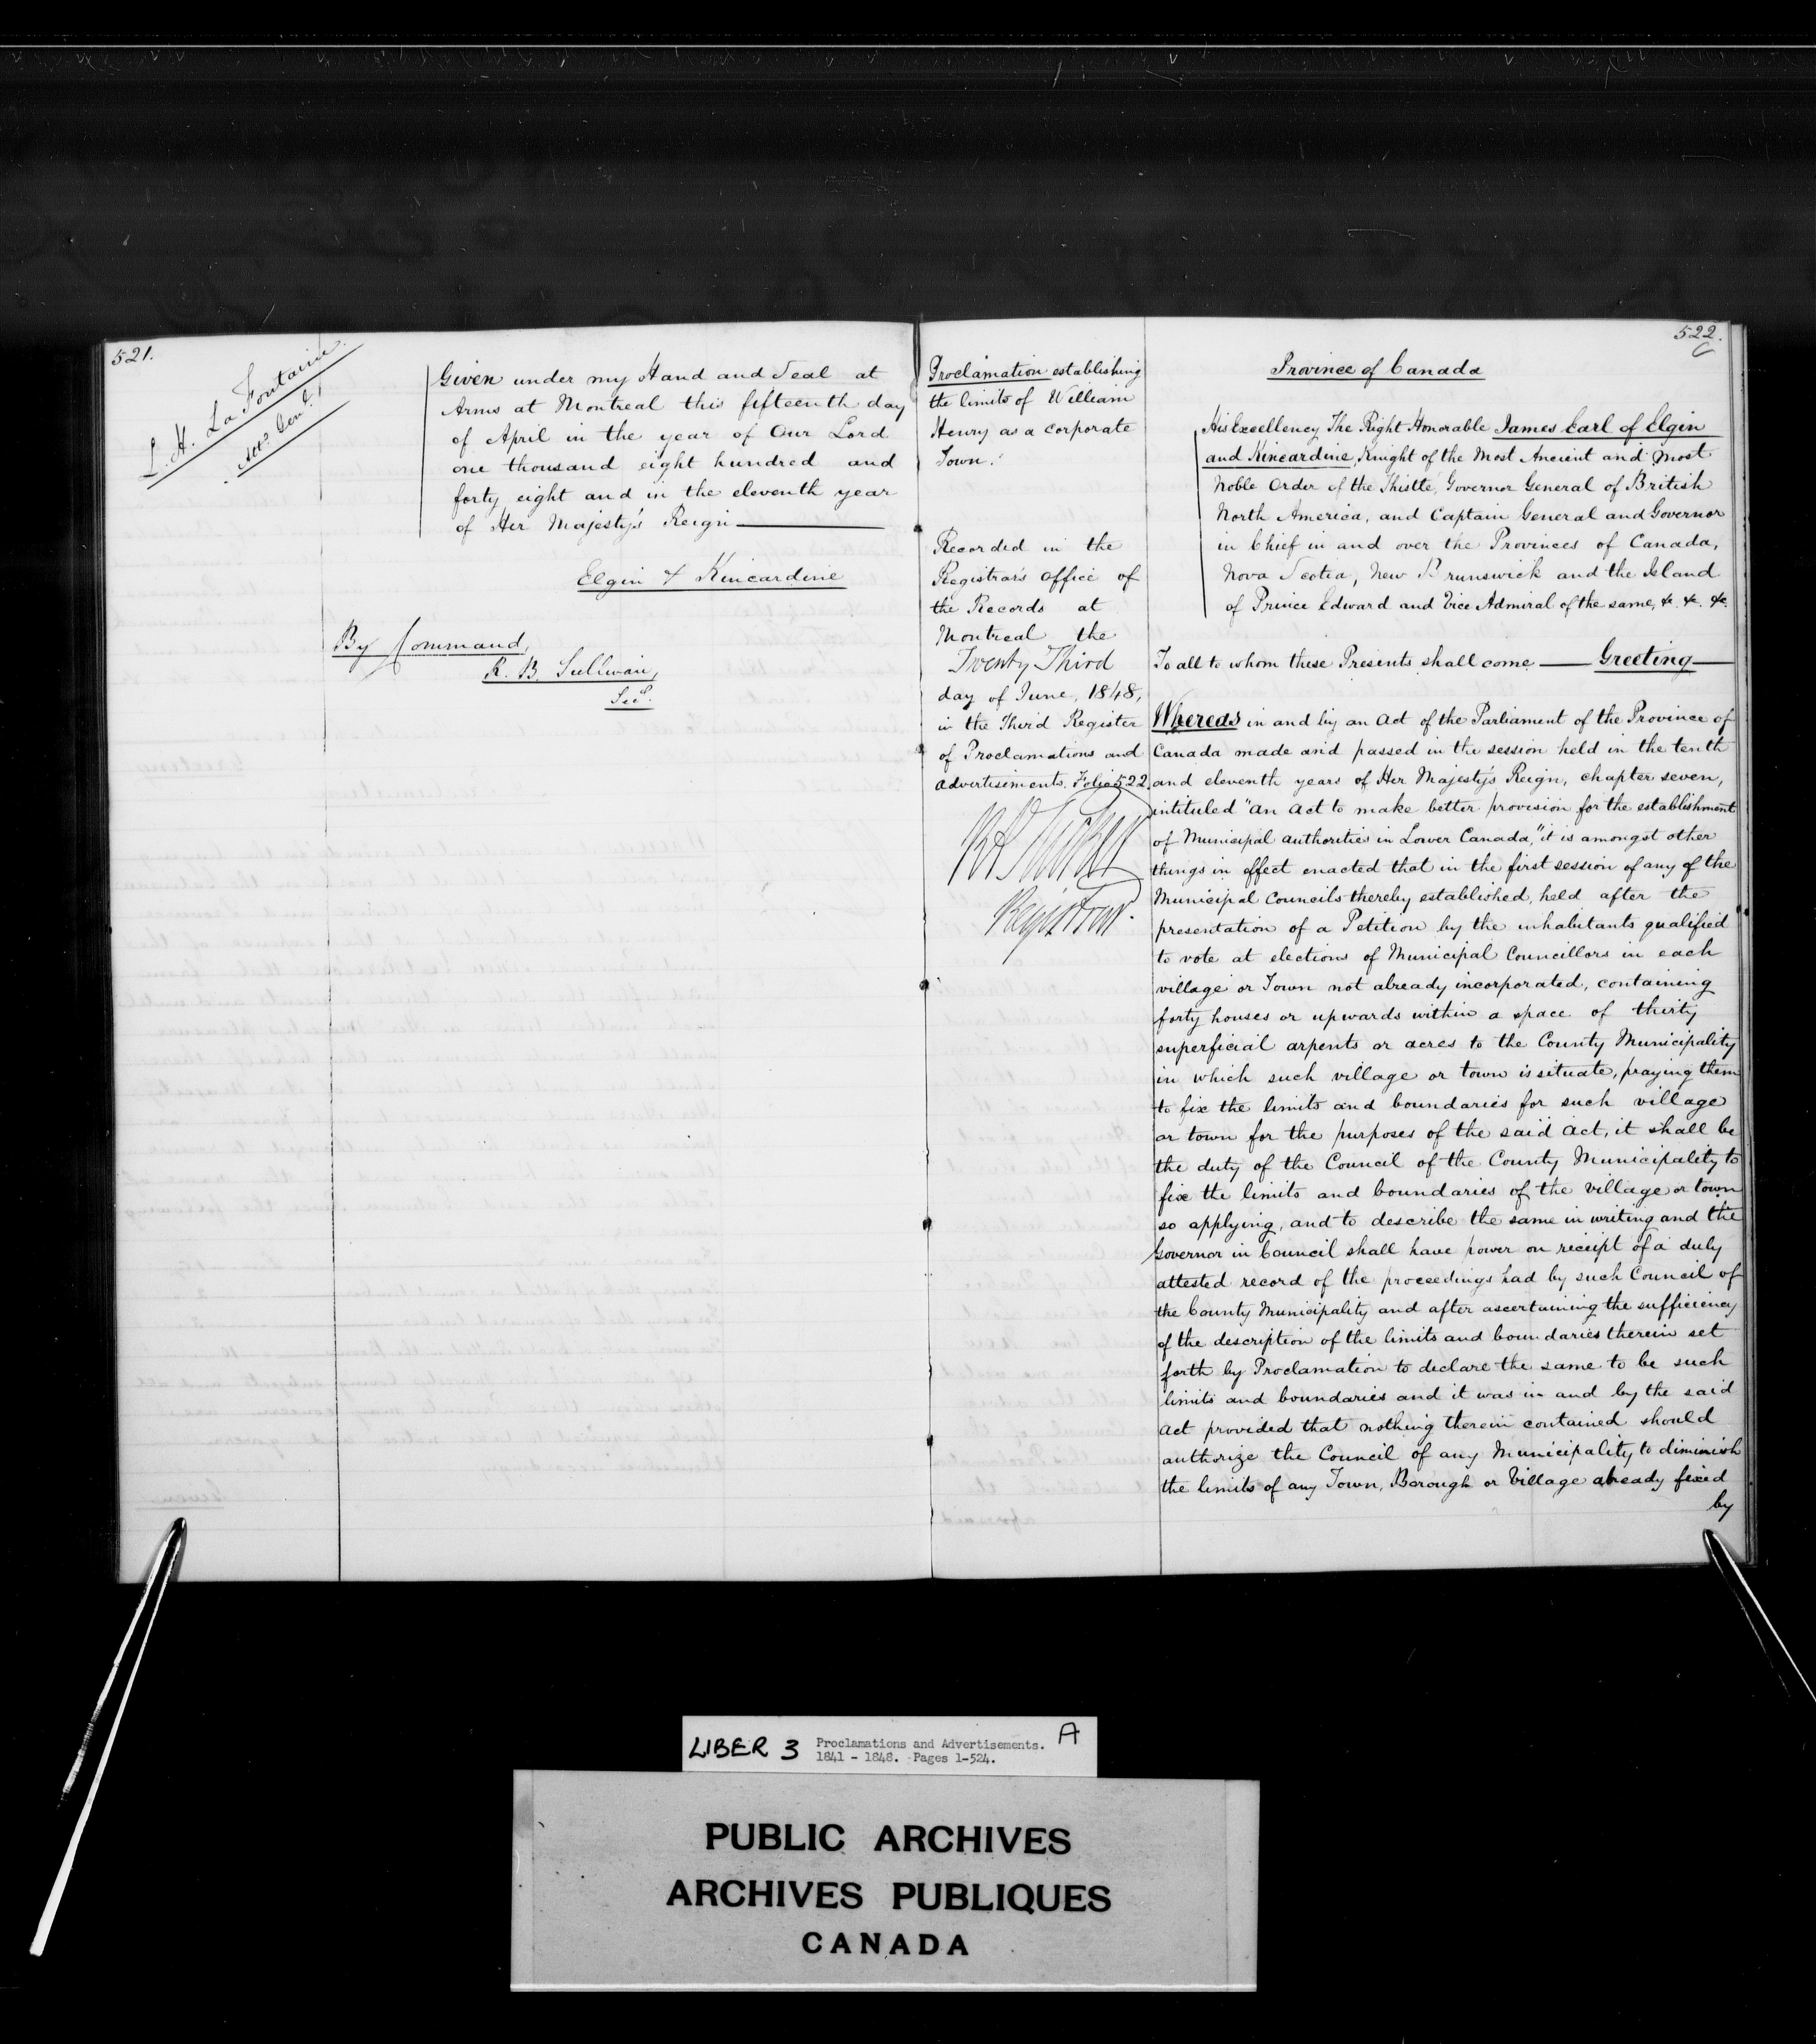 521.
L. H. La Fontaine.
Atty. Genl.
Given under my Hand and Seal at
Arms at Montreal this fifteenth day
of April in the year of Our Lord
one thousand eight hundred and
forty eight and in the eleventh year
of Her Majesty's Reign
Elgin & Kincardine
By Command,
R. B. Sullivan,
Secy.
Proclamation establishing
the limits of William
Henry as a corporate
Town.
Recorded in the
Registrar's Office of
the Records at
Montreal the
Twenty Third
day of June, 1848,
in the Third Register
of Proclamations and
advertisements. Folio 522.
Registrar.
522.
Province of Canada
His Excellency The Right Honorable James Earl of Elgin
and Kincardine, Knight of the Most Ancient and Most
Noble Order of the Thistle, Governor General of British
North America, and Captain General and Governor
in Chief in and over the Provinces of Canada,
Nova Scotia, New Brunswick and the Island
of Prince Edward and Vice Admiral of the same, &. &. &.
To all to whom these Presents shall come — Greeting —
Whereas in and by an Act of the Parliament of the Province of
Canada made and passed in the session held in the tenth
and eleventh years of Her Majesty's Reign, chapter seven,
intituled "An Act to make better provision for the establishment
of Municipal authorities in Lower Canada," it is amongst other
things in effect enacted that in the first session of any of the
Municipal Councils thereby established, held after the
presentation of a Petition by the inhabitants qualified
to vote at elections of Municipal Councillors in each
village or Town not already incorporated, containing
forty houses or upwards within a space of thirty
superficial arpents or acres to the County Municipality
in which such village or town is situate, praying them
to fix the limits and boundaries for such village
or town for the purposes of the said Act, it shall be
the duty of the Council of the County Municipality to
fix the limits and boundaries of the village or town
so applying, and to describe the same in writing and the
Governor in Council shall have power on receipt of a duly
attested record of the proceedings had by such Council of
the County Municipality and after ascertaining the sufficiency
of the description of the limits and boundaries therein set
forth by Proclamation to declare the same to be such
limits and boundaries and it was in and by the said
Act provided that nothing therein contained should
authorize the Council of any Municipality to diminish
the limits of any Town, Borough or Village already fixed
by
LIBER 3 Proclamations and Advertisements. A
1841 - 1848. Pages 1-524.
PUBLIC ARCHIVES
ARCHIVES PUBLIQUES
CANADA